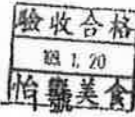 驗收合格
109. 1. 20
怡鷺美食